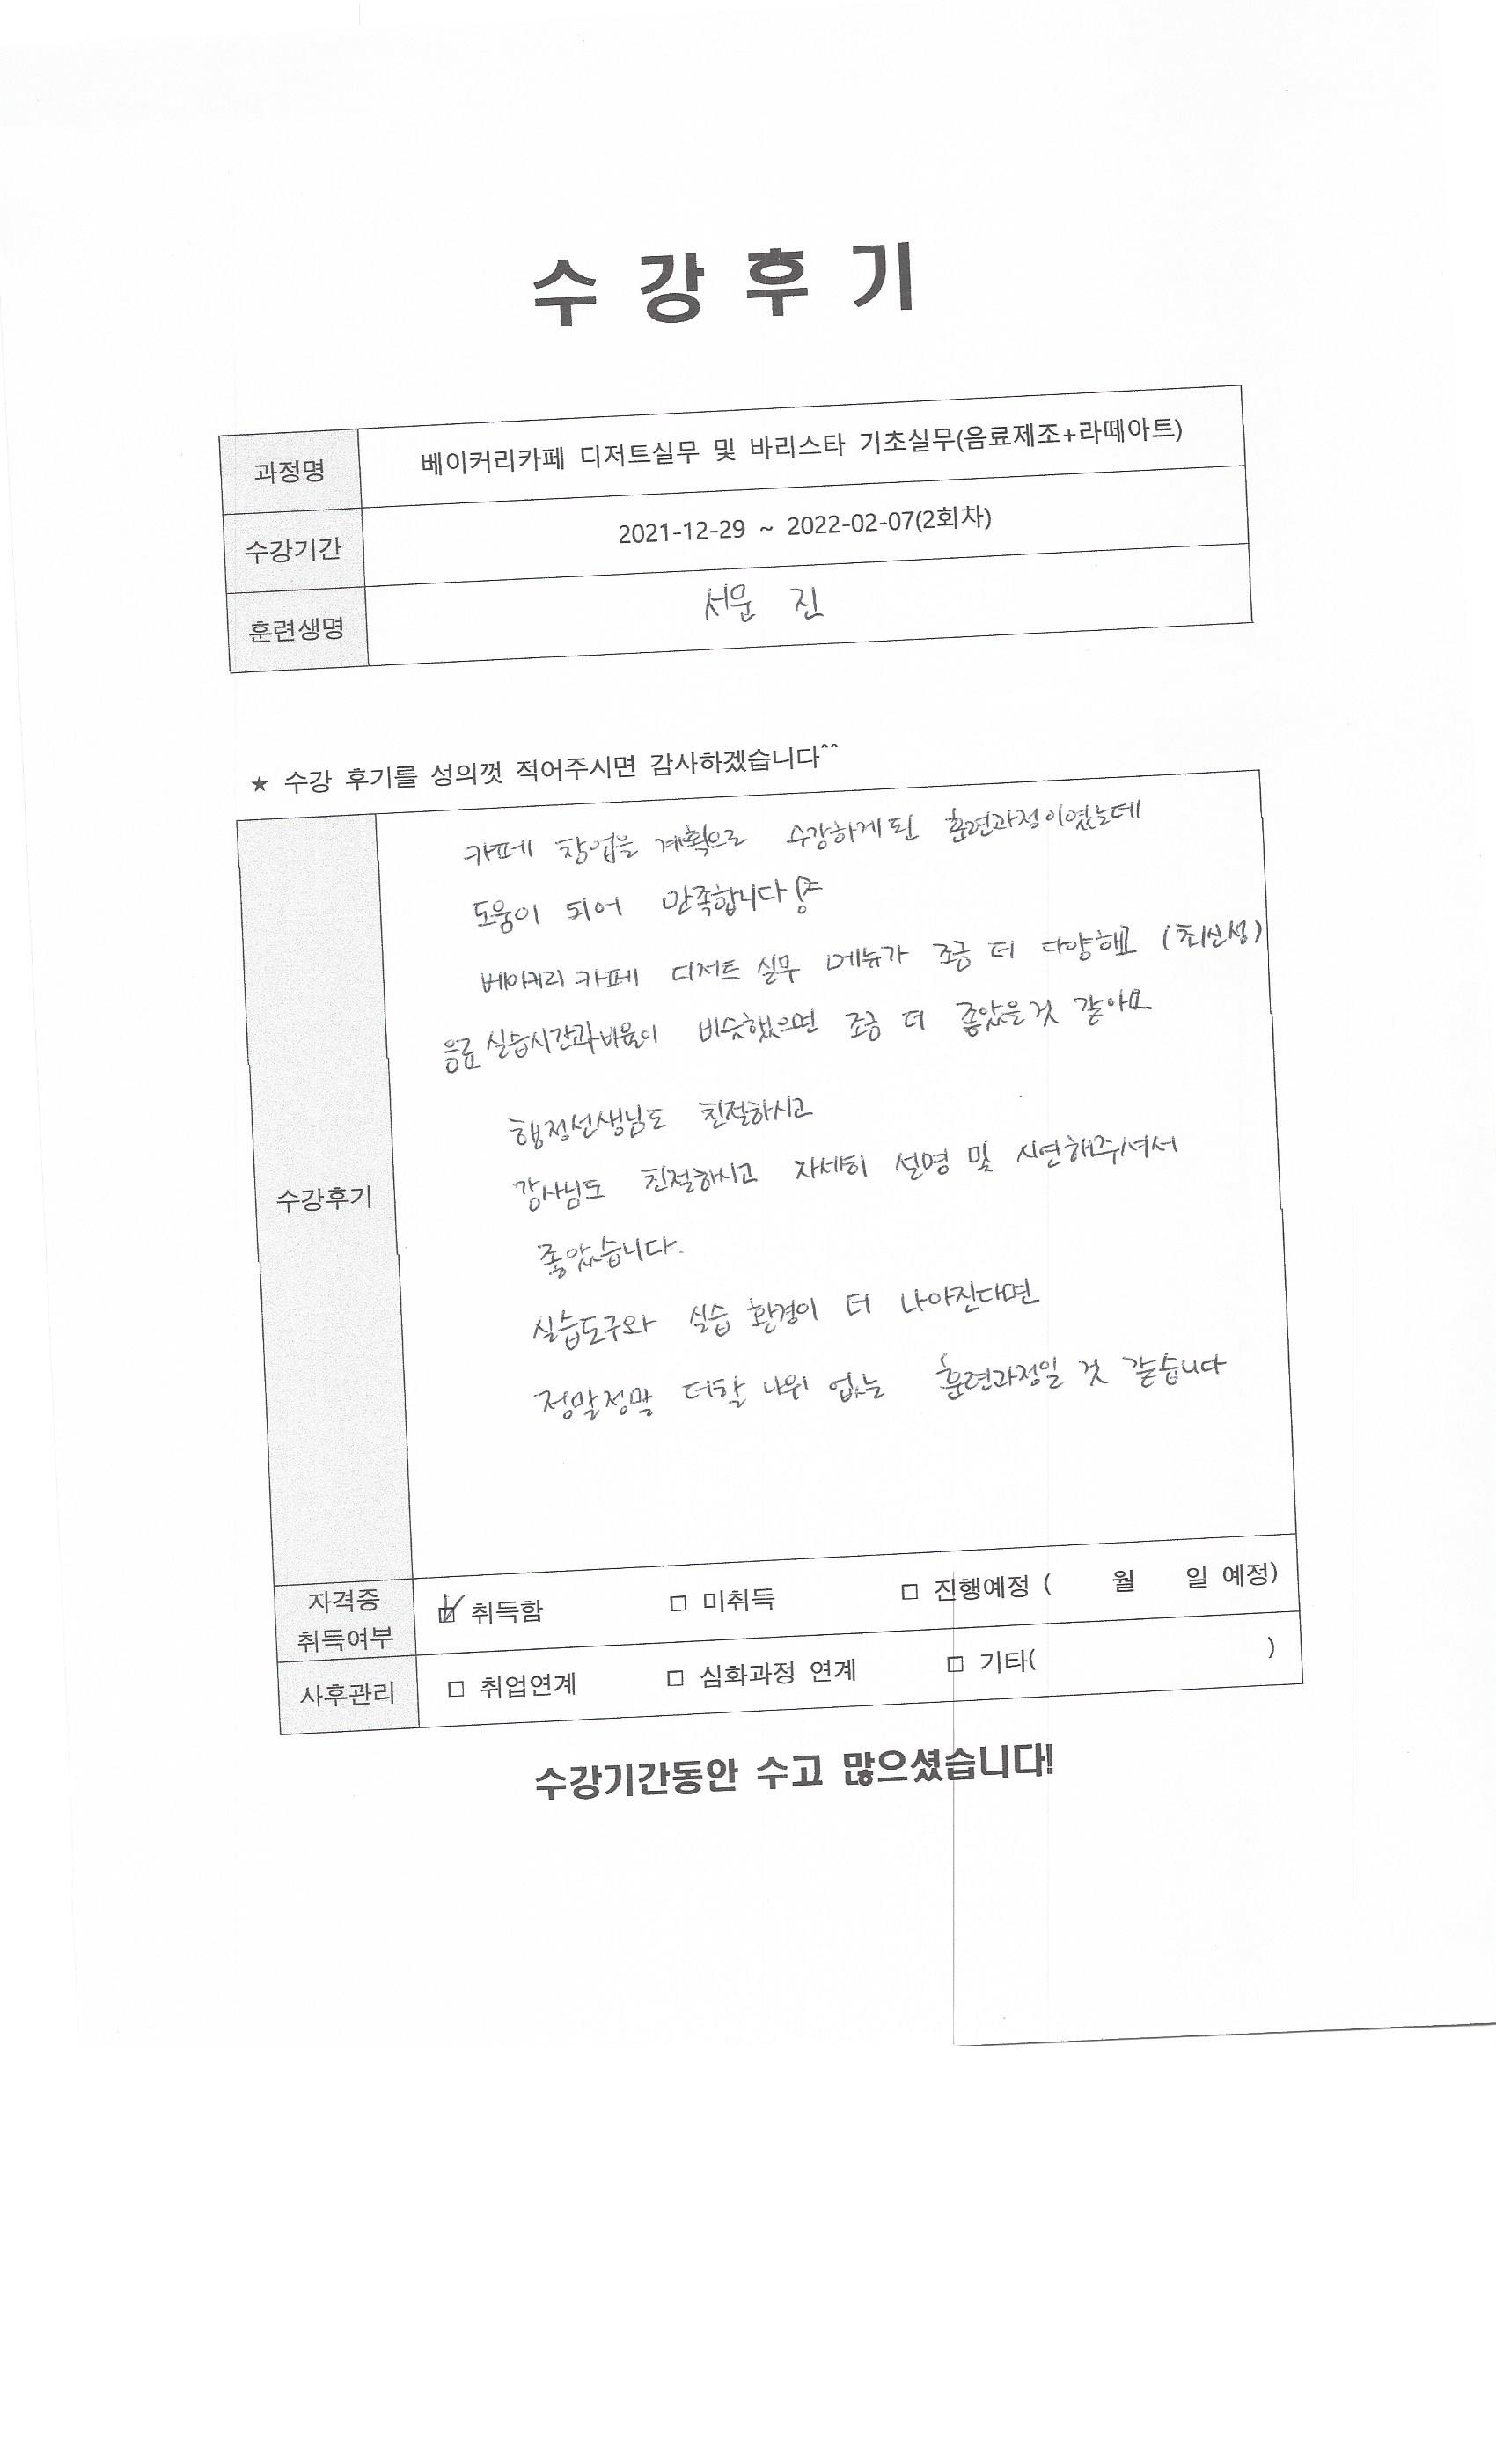 수강후기
과정명 베이커리카페 디저트실무 및 바리스타 기초실무(음료제조+라떼아트)
수강기간 2021-12-29 ~ 2022-02-07(2회차)
훈련생명 서운 진
★ 수강 후기를 성의껏 적어주시면 감사하겠습니다^^
수강후기
카페 창업을 계획으로 수강하게 된 훈련과정이였는데
도움이 되어 만족합니다
베이커리 카페 디저트 실무 메뉴가 조금 더 다양해요 (최신성)
음료 실습시간과 비율이 비슷했으면 조금 더 좋았을것 같아요
행정선생님도 친절하시고
강사님도 친절하시고 자세히 설명 및 시연해주셔서
좋았습니다.
실습도구와 실습 환경이 더 나아진다면
정말정말 더할 나위 없는 훈련과정일 것 같습니다
자격증 취득여부 ☑ 취득함 □ 미취득 □ 진행예정 ( 월 일 예정)
사후관리 □ 취업연계 □ 심화과정 연계 □ 기타( )
수강기간동안 수고 많으셨습니다!